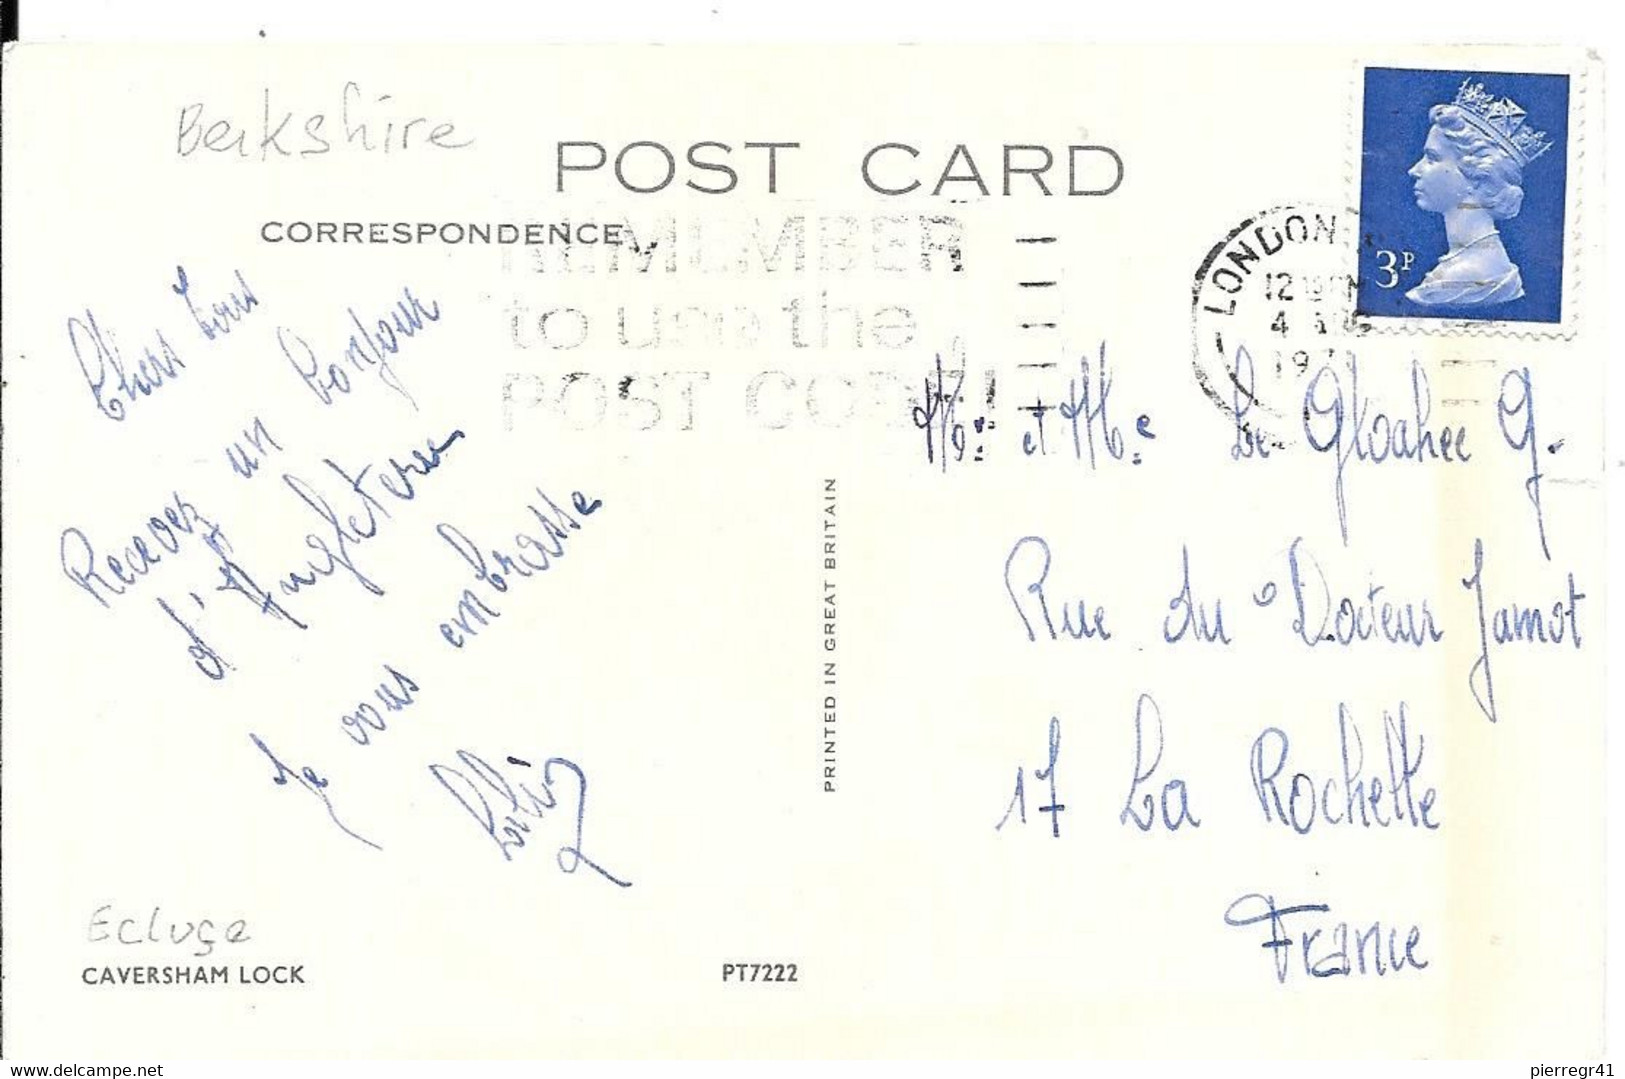 Berkshire
POST CARD
CORRESPONDENCE
REMEMBER
to use the
POST CODE
LONDON
12
4 AUG
197
3P
Chers tous
Recevez un bonjour
d'Angleterre
Je vous embrasse
Mr. et Me. Le Gloahec G.
Rue du Docteur Jamot
17 La Rochelle
France
PRINTED IN GREAT BRITAIN
Ecluse
CAVERSHAM LOCK
PT7222
pierregr41